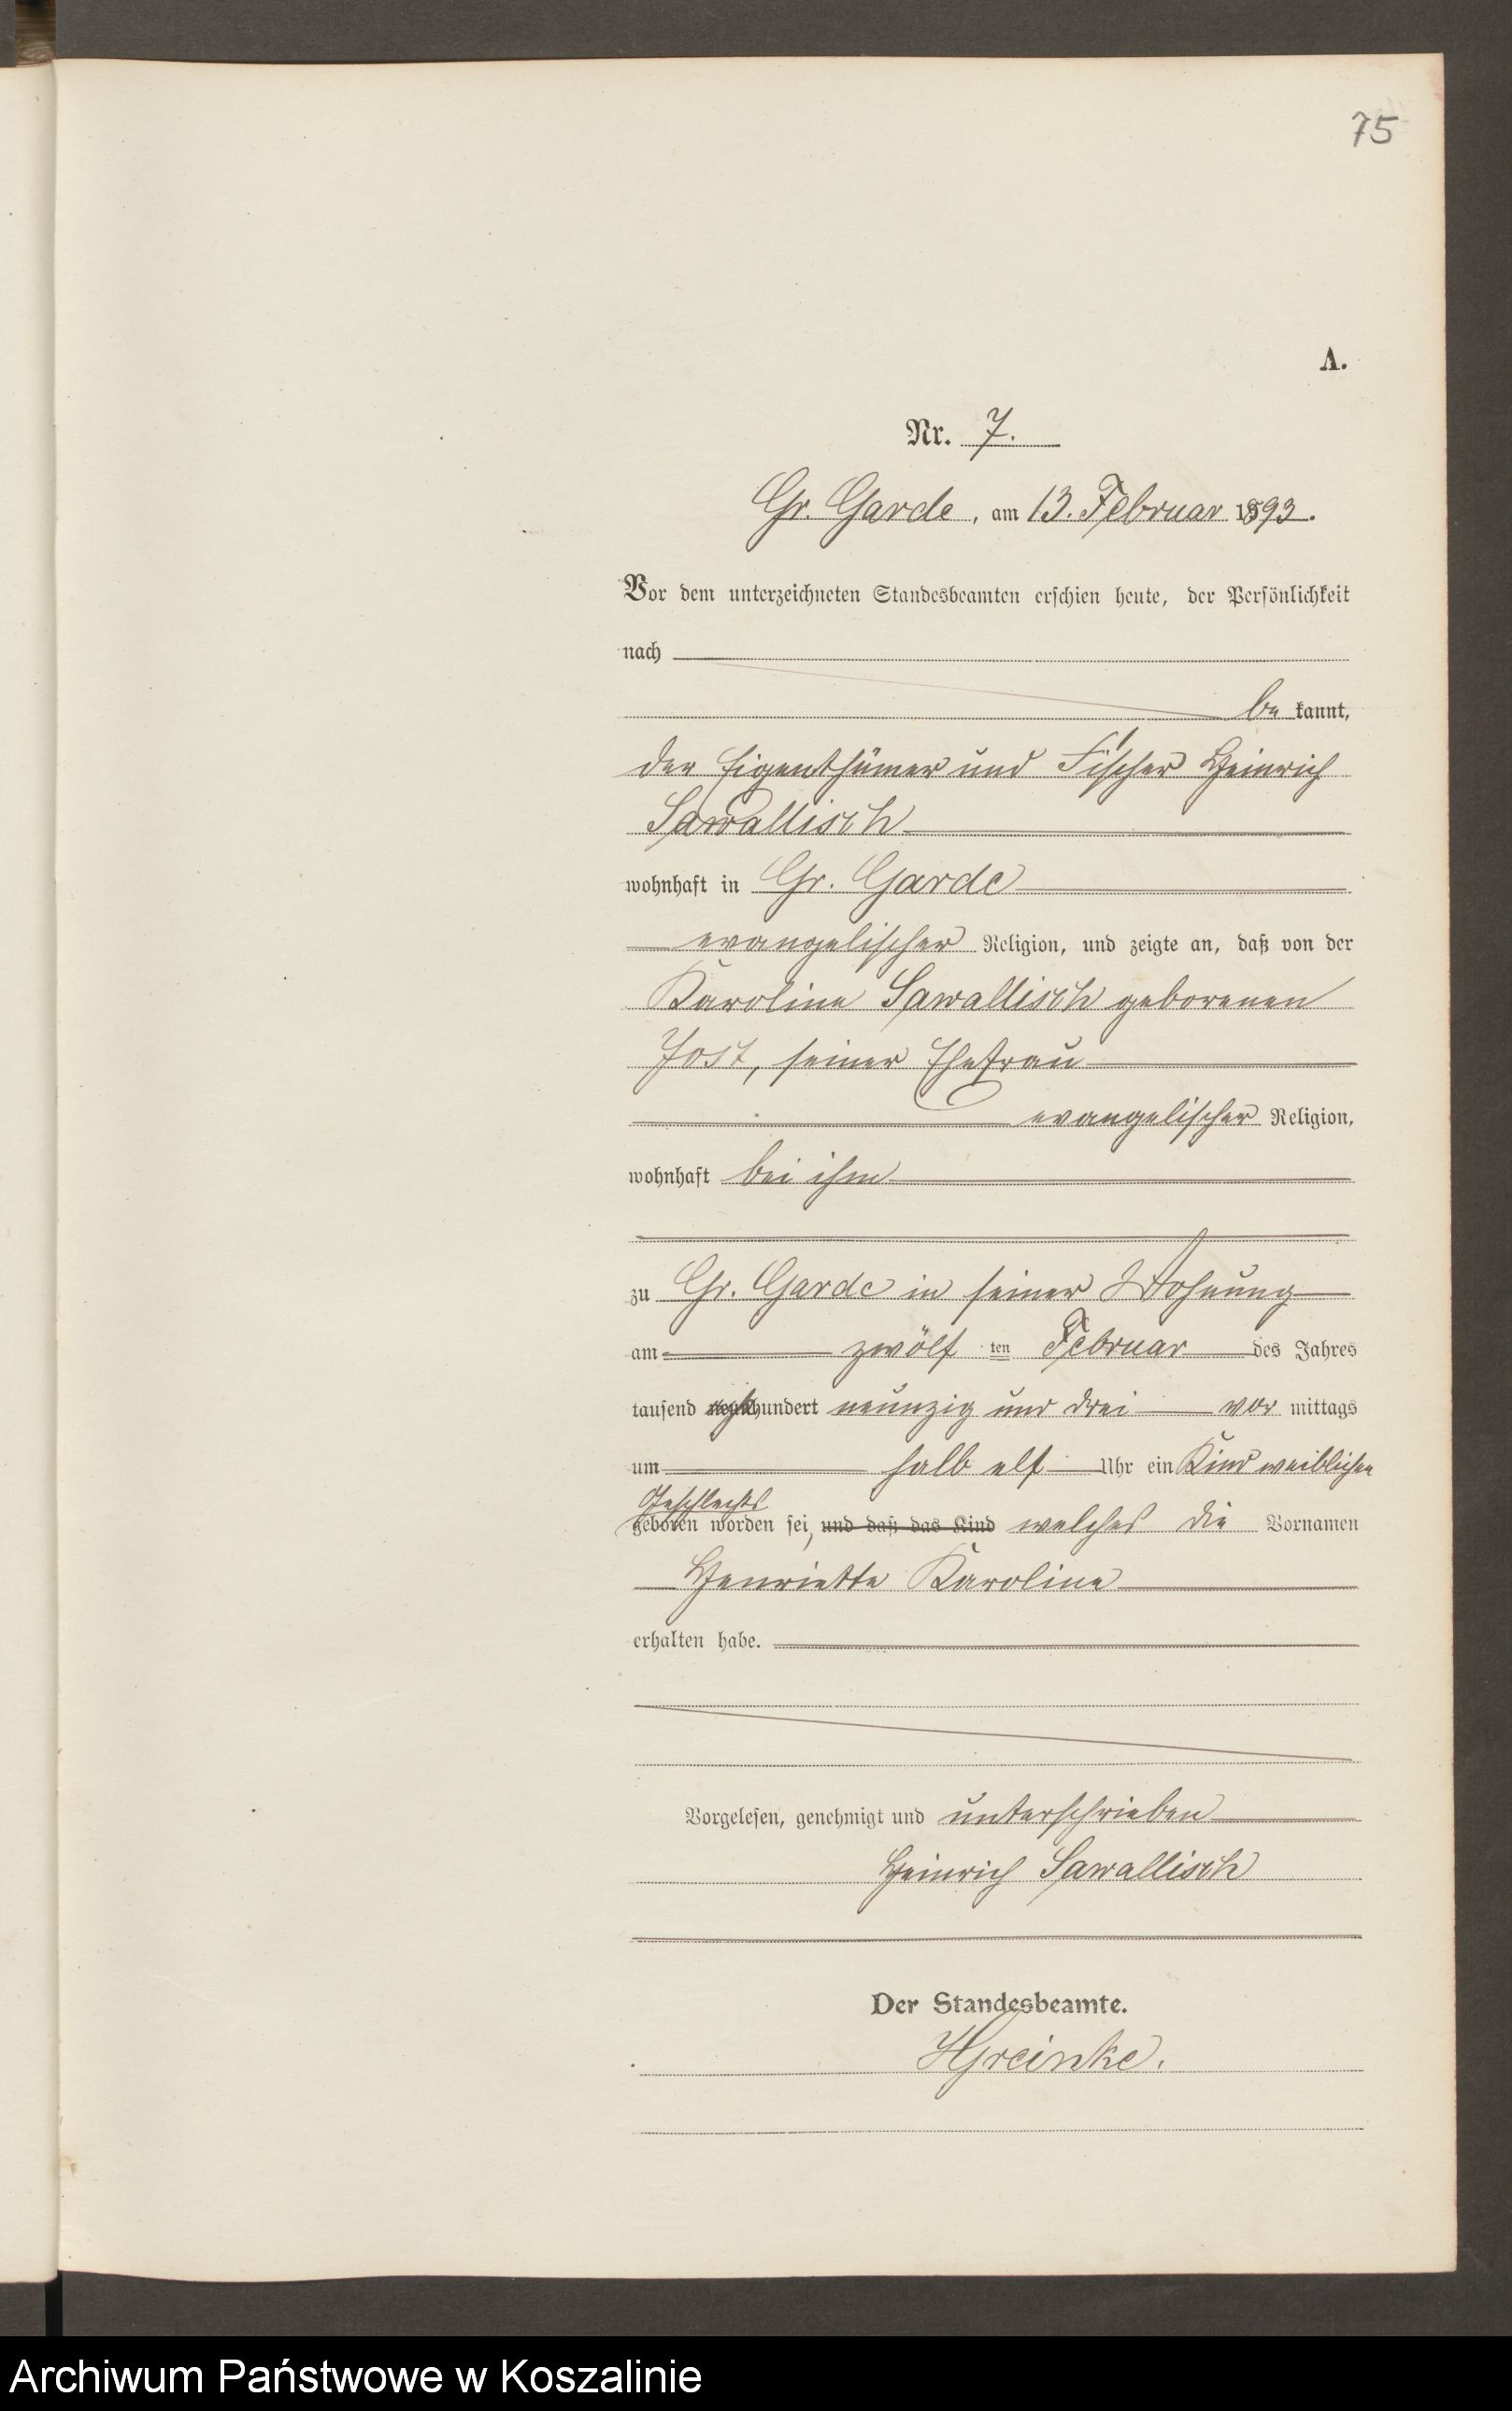 75
A.
Nr. 7.
Gr. Garde, am 13. Februar 1893.
Vor dem unterzeichneten Standesbeamten erschien heute, der Persönlichkeit
nach
be kannt,
der Eigenthümer und Fischer Heinrich
Sawallisch
wohnhaft in Gr. Garde
evangelischer Religion, und zeigte an, daß von der
Karoline Sawallisch geborenen
Jost, seiner Ehefrau
evangelischer Religion,
wohnhaft bei ihm
zu Gr. Garde in seiner Wohnung
am zwölf ten Februar des Jahres
tausend hundert neunzig und drei vor mittags
um halb elf Uhr ein Kind weiblichen
Geschlechts
geboren worden sei, und daß das Kind welches die Vornamen
Henriette Karoline
erhalten habe.
Vorgelesen, genehmigt und unterschrieben
Heinrich Sawallisch
Der Standesbeamte.
Archiwum Państwowe w Koszalinie